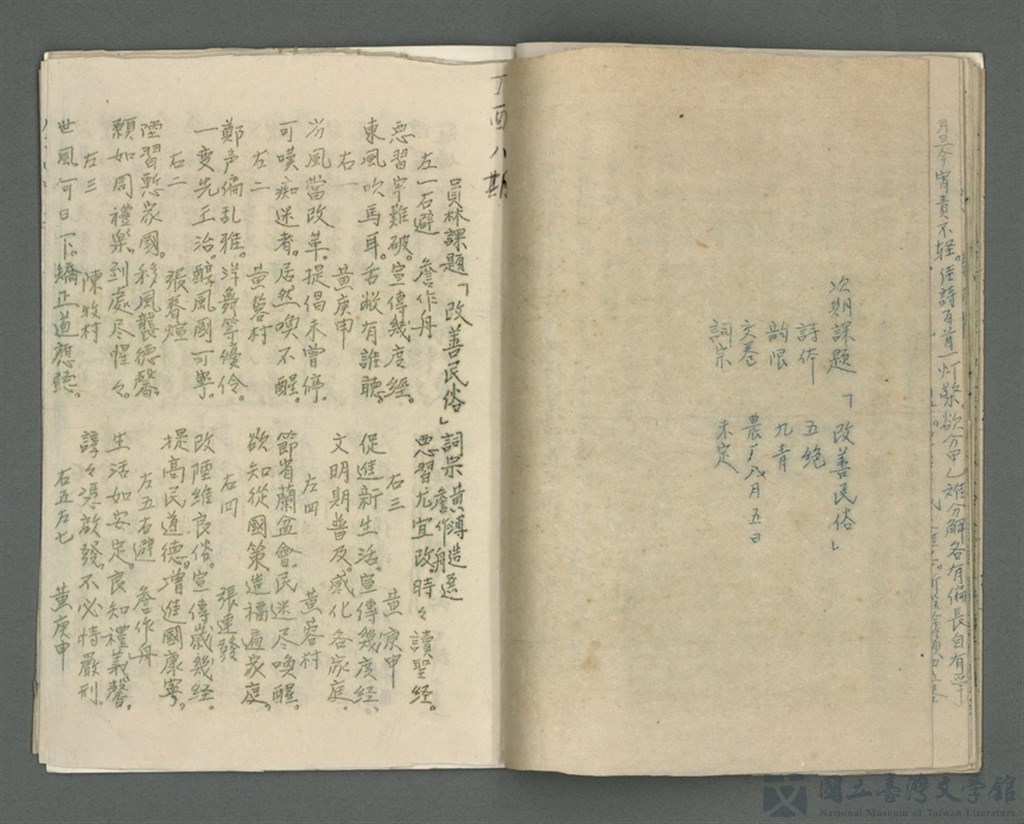 月旦今宵責不輕。佳詩百首一灯熒欲分甲乙难分解各有偏長自有
次期課題「改善民俗」
詩体 五絶
韵限 九青
文卷 農八月五日
詞宗 未定
丁酉八期
員林課題「改善民俗」詞宗黃溥造 詹作舟 選
左一右避 詹作舟
惡習牢難破。宣傳幾度經。
東風吹馬耳。舌敝有誰聽。
右一 黃庚申
汾風當改革。提倡未曾停。
可嘆痴迷者。居然喚不醒。
左二 黃蓉村
鄭声偏乱雅。洋舞等優伶。
一變先王治。醇風國可寧。
右二 張春煊
陋習慙家國。移風襲德馨。
願如周禮樂。到處尽惺々。
左三 陳牧村
世風何日下。矯正道應聽。
惡習尤宜改。時々讀聖經。
右三 黃庚申
促進新生活。宣傳幾度經。
文明期普及。感化各家庭。
左四 黃蓉村
節省蘭盆會。民迷尽喚醒。
欲知從國策。造福遍家庭。
右四 張連發
改陋維良俗。宣傳歲幾経。
提高民道德。增進國康寧。
左五右避 詹作舟
生活如安定。良知禮義馨。
諄々憑啟發。不必恃嚴刑。
右五左七 黃庚申
國立臺灣文學館
National Museum of Taiwan Literature